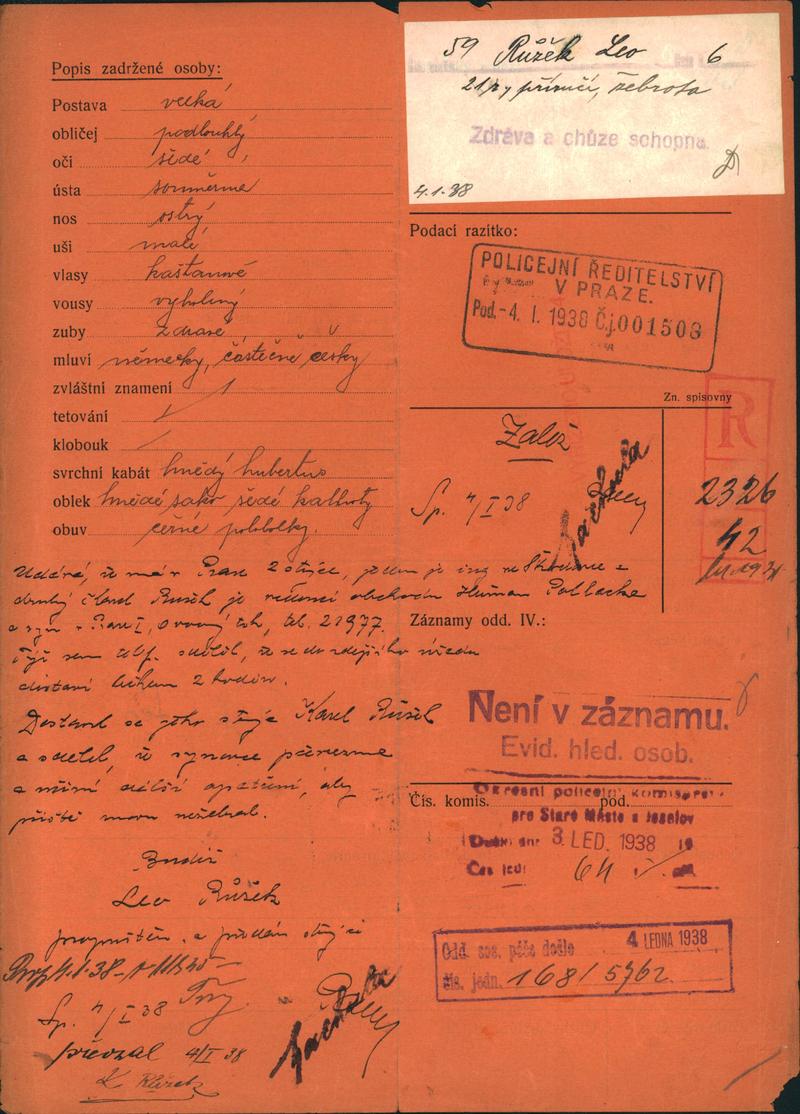 Popis zadržené osoby:
Postava velká
obličej podlouhlý
oči šedé
ústa souměrná
nos ostrý
uši malé
vlasy kaštanové
vousy vyholený
zuby zdravé
mluví německy, částečně česky
zvláštní znamení /
tetování /
klobouk /
svrchní kabát hnědý hubertus
oblek hnědé sako šedé kalhoty
obuv černé polobotky.
Udává, že má v Praze 2 strýce, jeden je ing. ve Škodovce a
druhý Karel Růžek je vedoucí obchodu Heřman Pollacka
a syn v Praze I, Ovocný trh, tel. 21977.
Týž sem telef. sdělil, že se do zdejšího úřadu
dostaví během 2 hodin.
Dostavil se jeho strýc Karel Růžek
a sdělil, že synovce převezme
a učiní další opatření, aby
příště znovu nežebral.
Budiž
Leo Růžek
propuštěn a předán strýci
Sp. 4/I 38
převzal 4/I 38
K Růžek
59 Růžek Leo 6
21/2, žebrota
Zdráva a chůze schopna.
4.1.38
Podací razítko:
POLICEJNÍ ŘEDITELSTVÍ
V PRAZE.
Pod. -4. I. 1938 Č.j. 001503
Zn. spisovny
R
Založ
Sp. 4/I 38
2326
42
Záznamy odd. IV.:
Není v záznamu.
Evid. hled. osob.
Čís. komis. pod.
Okresní policejní komisařství
pro Staré Město a Josefov
Došlo dne 3. LED. 1938
Čas. jed.
Odd. soc. péče došlo 4 LEDNA 1938
čís. jedn. 168/5962